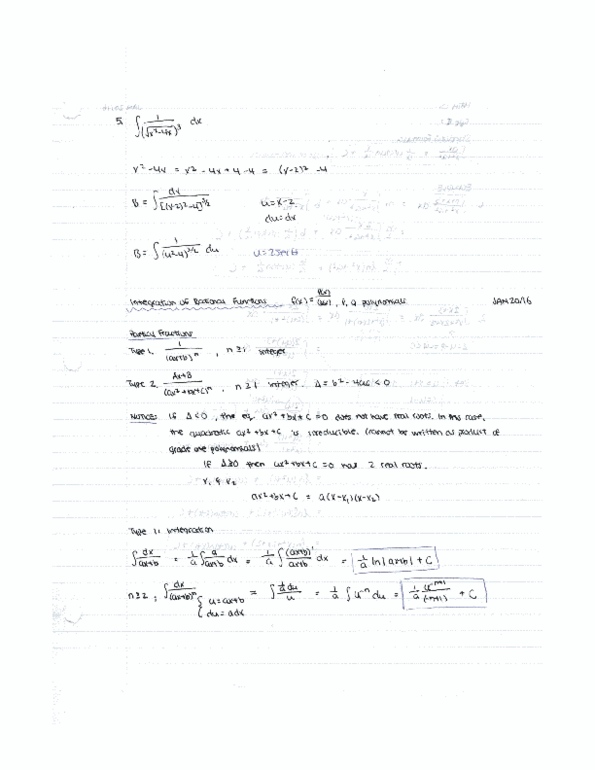 5. ∫ 1/(√x²-4x)³ dx
x² - 4x = x² - 4x + 4 - 4 = (x-2)² - 4
B = ∫ dx/[(x-2)²-4]^3/2 u = x-2
du = dx
B = ∫ 1/(u²-4)^3/2 du u = 2secθ
Integration of Rational Functions f(x) = P(x)/Q(x), P, Q polynomials JAN 20/16
Partial Fractions
Type 1. 1/(ax+b)^n , n ≥ 1 integer
Type 2. Ax+B/(ax²+bx+c)^n , n ≥ 1 integer. Δ = b² - 4ac < 0
Notice: If Δ<0, the eq. ax²+bx+c = 0 does not have real roots. In this case,
the quadratic ax²+bx+c is irreducible. (cannot be written as product of
grade one polynomials)
If Δ≥0 then ax²+bx+c = 0 has 2 real roots.
x₁ & x₂
ax²+bx+c = a(x-x₁)(x-x₂)
Type 1: integration
∫ dx/ax+b = 1/a ∫ a/ax+b dx = 1/a ∫ (ax+b)'/ax+b dx = 1/a ln|ax+b| + C
n≥2 : ∫ dx/(ax+b)^n { u = ax+b du = adx = ∫ 1/a du/u = 1/a ∫ u^-n du = 1/a u^-n+1/(-n+1) + C